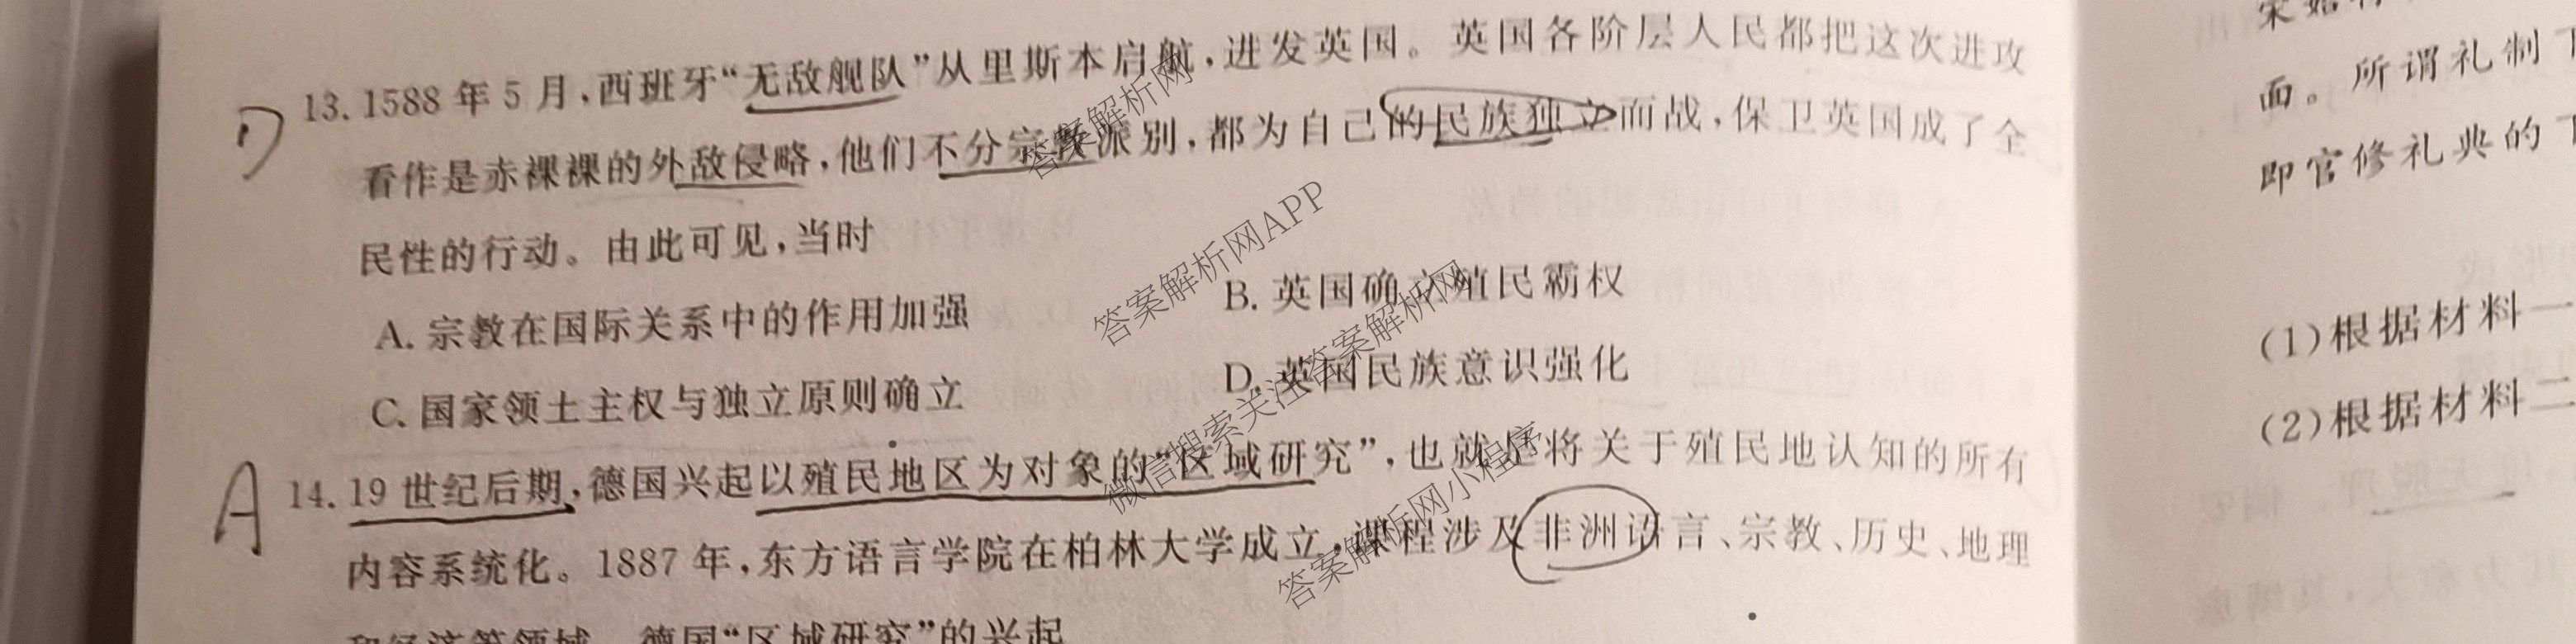 D
13. 1588 年 5 月,西班牙“无敌舰队”从里斯本启航,进发英国。英国各阶层人民都把这次进攻
看作是赤裸裸的外敌侵略,他们不分宗教派别,都为自己的民族独立而战,保卫英国成了全
民性的行动。由此可见,当时
A. 宗教在国际关系中的作用加强
B. 英国确立殖民霸权
C. 国家领土主权与独立原则确立
D. 英国民族意识强化
A
14. 19 世纪后期,德国兴起以殖民地区为对象的“区域研究”,也就是将关于殖民地认知的所有
内容系统化。1887 年,东方语言学院在柏林大学成立,课程涉及非洲语言、宗教、历史、地理
和经济等领域。德国“区域研究”的兴起
面。所谓礼制
即官修礼典的
(1)根据材料一
(2)根据材料二
答案解析网
答案解析网APP
微信搜索关注答案解析网
答案解析网小程序